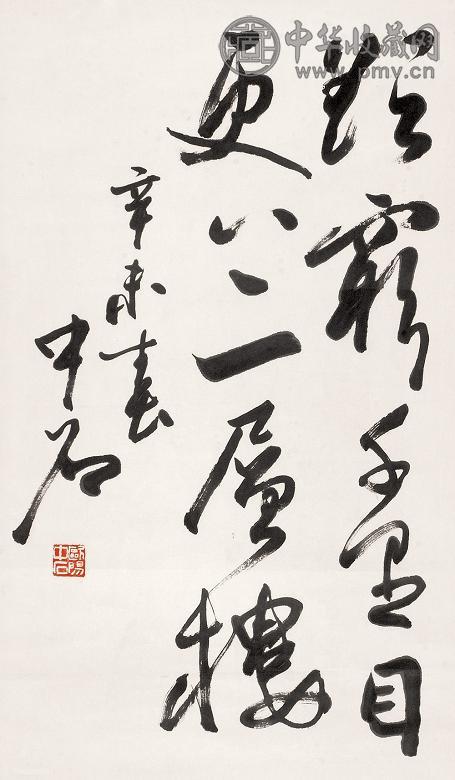 中华收藏网
www.pmv.cn
欲窮千里目
更上一層樓
辛未春
中石
歐陽
中石